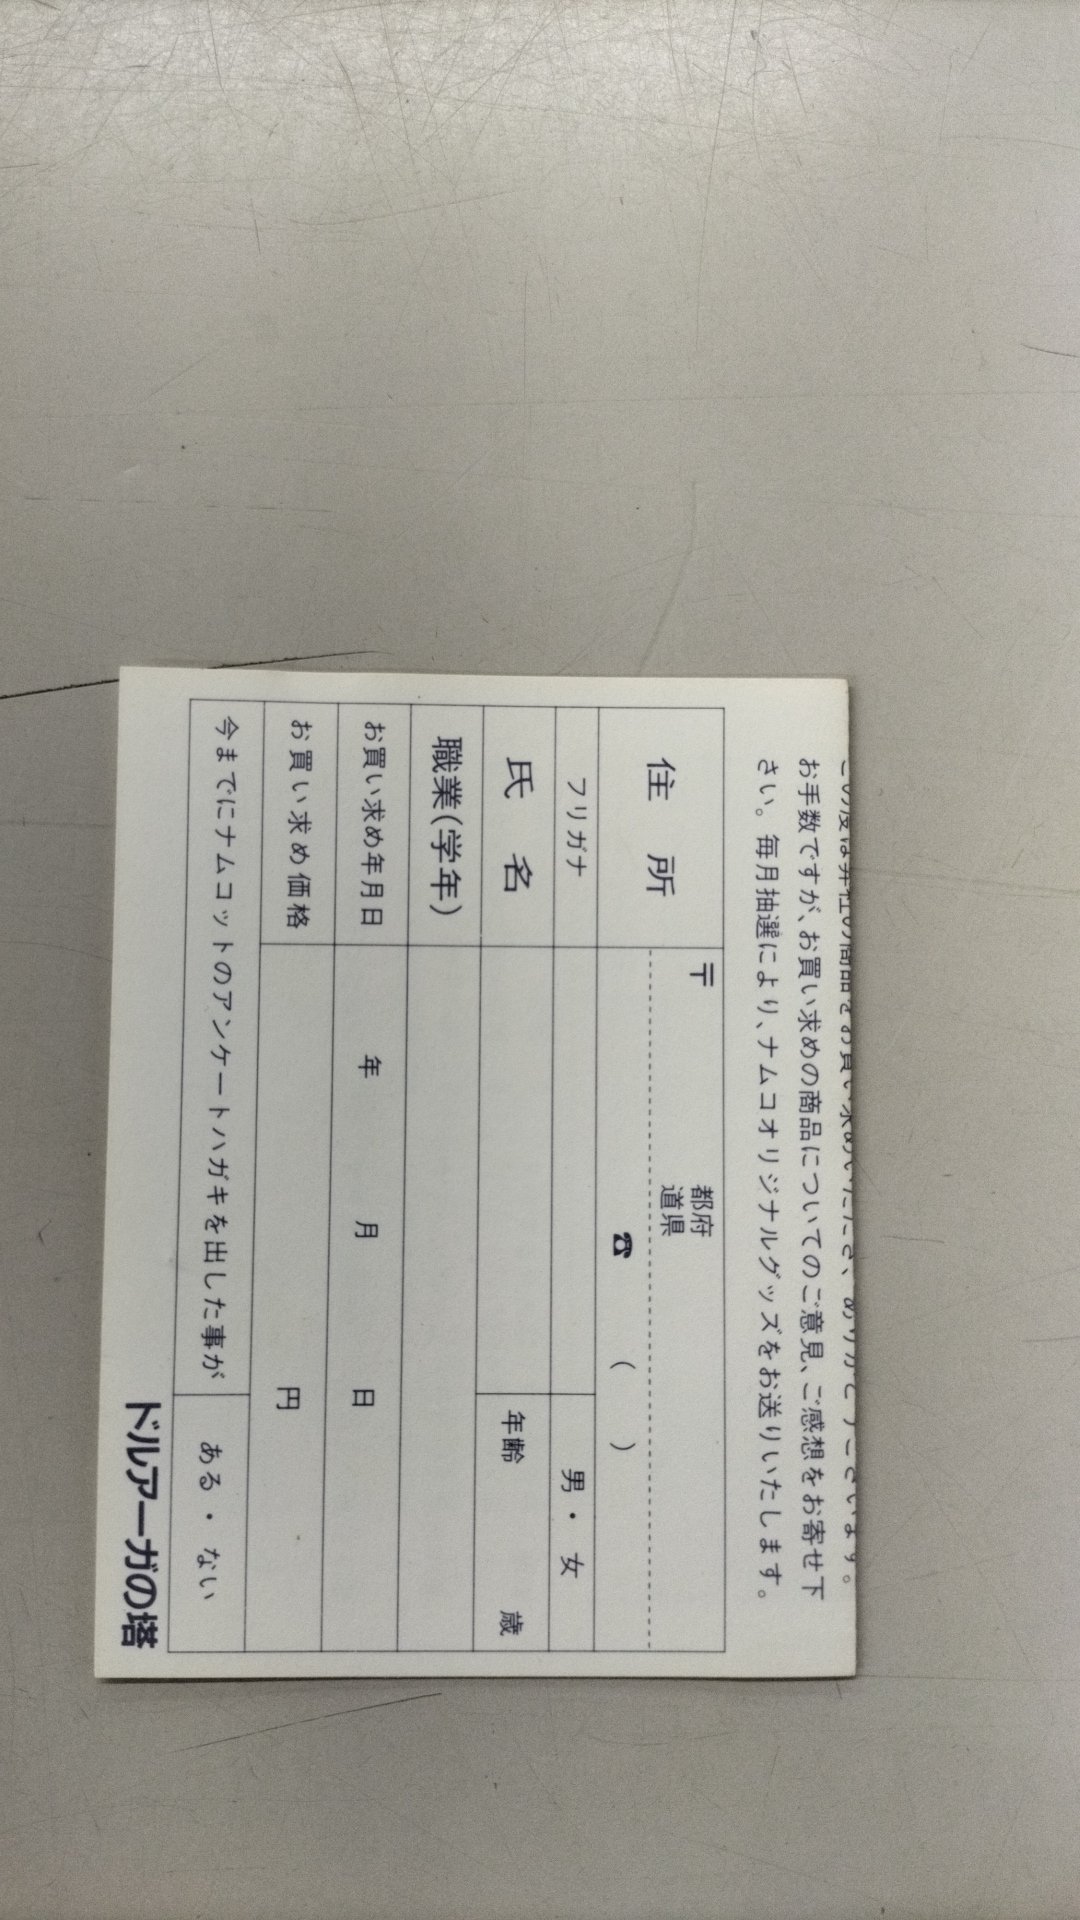 この度は弊社の商品をお買い求めいただき、ありがとうございます。
お手数ですが、お買い求めの商品についてのご意見、ご感想をお寄せ下
さい。毎月抽選により、ナムコオリジナルグッズをお送りいたします。
住 所
〒
都府
道県
☎ ( )
フリガナ
男・女
氏 名
年齢 歳
職業(学年)
お買い求め年月日
年 月 日
お買い求め価格
円
今までにナムコットのアンケートハガキを出した事が
ある・ない
ドルアーガの塔